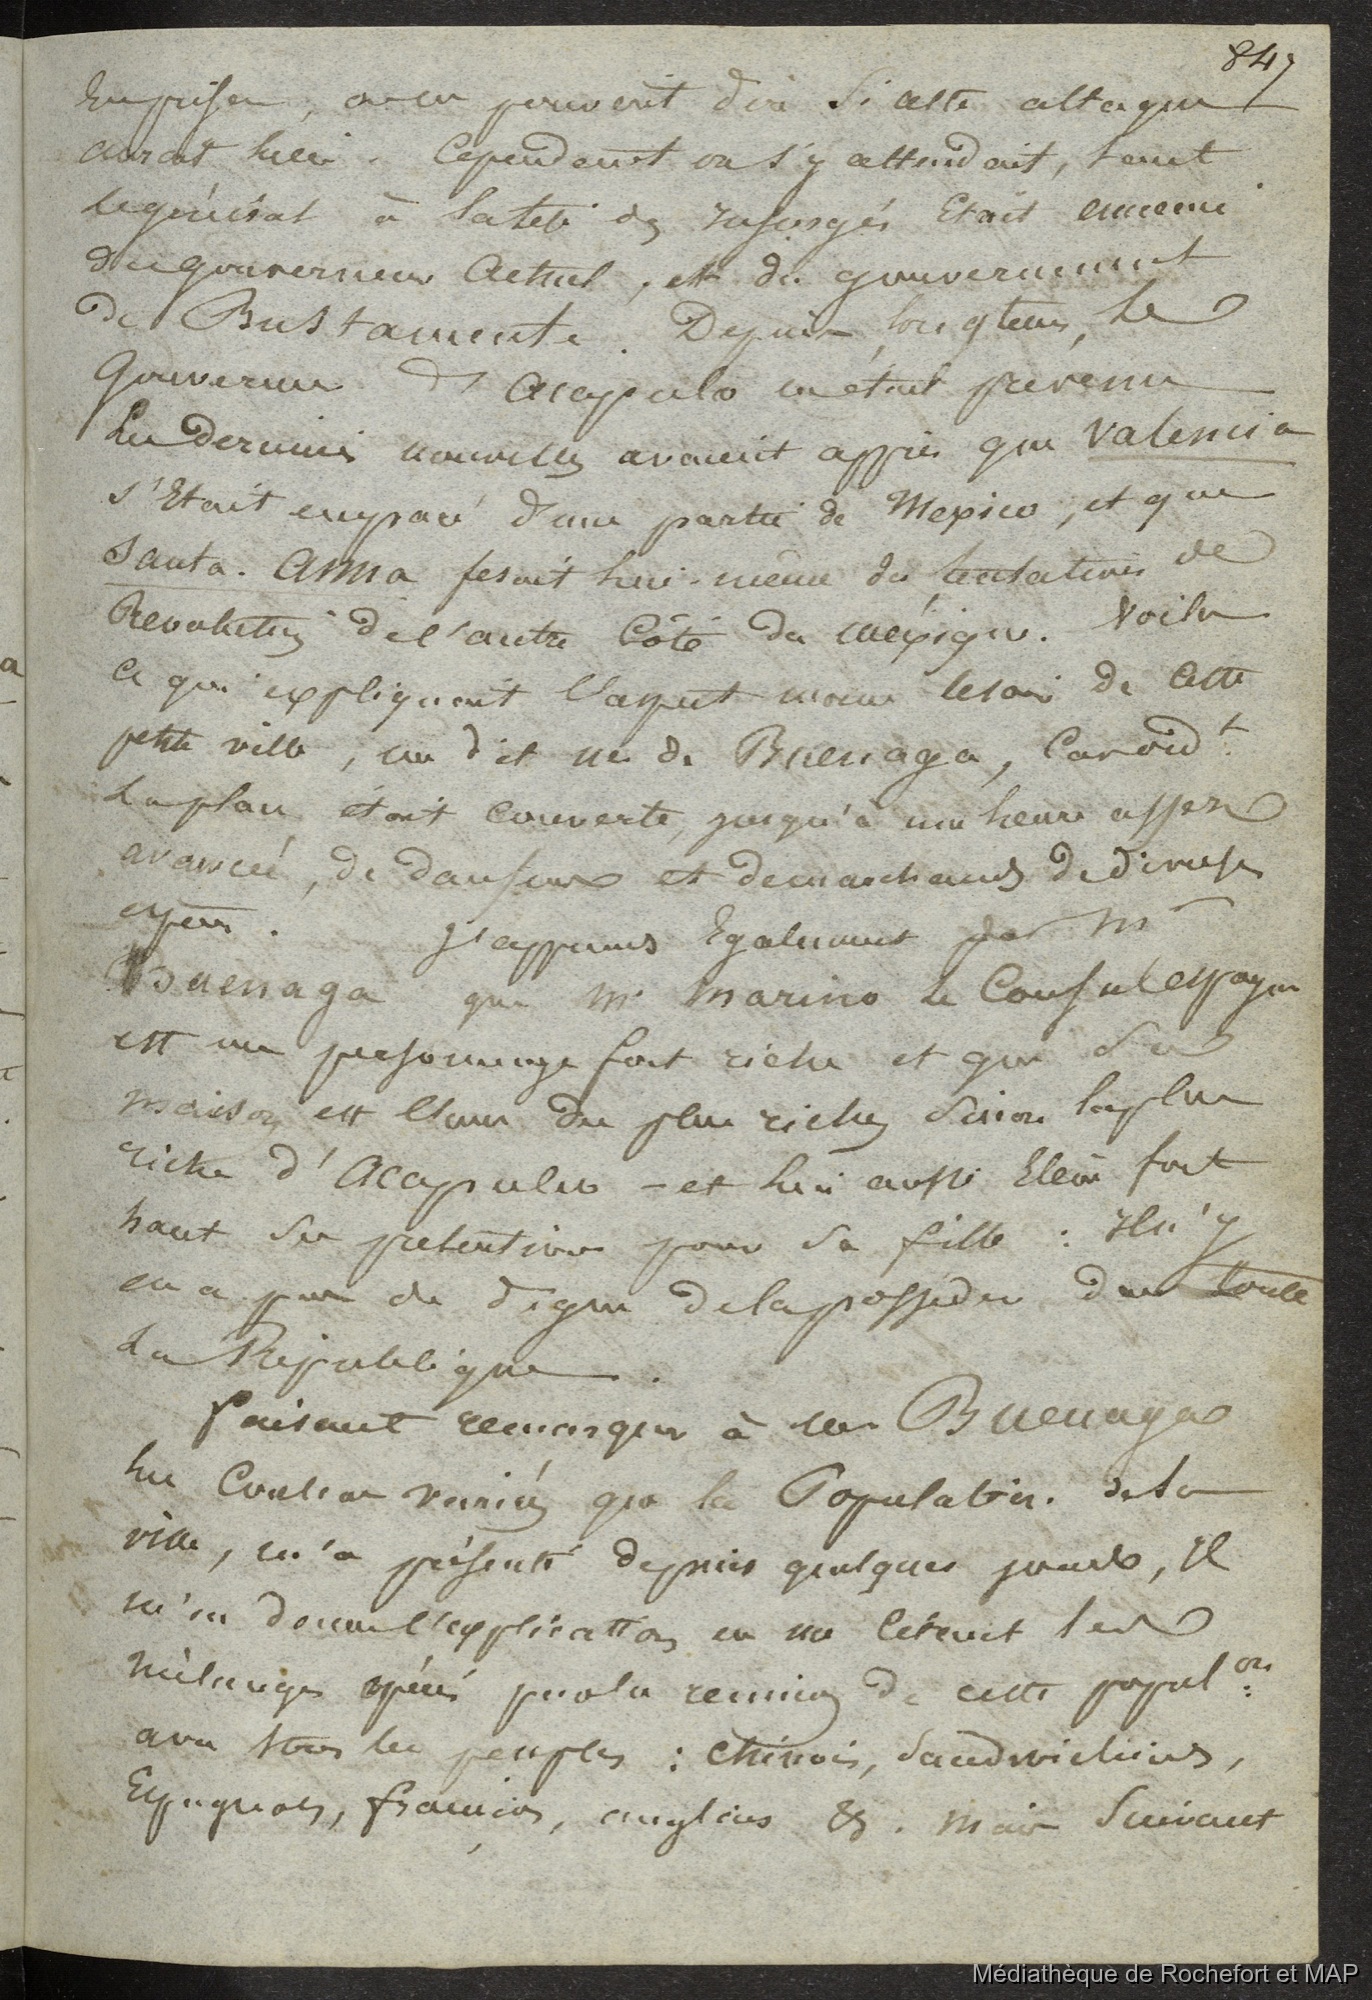 847
Surprise, on ne pouvait dire si cette attaque
aurait lieu. Cependant on s'y attendait, tant
le général à la tête des insurgés Etait ennemi
du gouverneur Actuel, et du gouvernement
de Bustamente. Depuis longtems, le
Gouverneur d'Acapulco en était prevenu
Les dernieres nouvelles avaient appris que Valencia
s'Etait emparé d'une partie de Mexico, et que
Santa-Anna fesait lui-même des tentatives de
Revolution de l'autre Côté du mexique. Voila
ce qui expliquait l'aspect morne le soir de Cette
petite ville, me dit mr de Buenaga, Car avt
la place était couverte, jusqu'à une heure assez
avancée, de danseurs et de marchands de diverses
especes. J'appris Egalement par mr
Buenaga que mr Marino le Consul espagnol
est un personnage fort riche et que sa
maison est l'une des plus riches sinon la plus
riche d'Acapulco - et lui aussi Eleve fort
haut ses pretentions pour sa fille : Il n'y
en a pas de digne de la posseder dans toute
La République.
faisant remarquer à mr Buenaga
les Couleurs variées que la Population de la
ville, m'a présenté depuis quelques jours, Il
m'en donne l'explication en me citant les
mélanges opérés par la reunion de cette popul.on
avec tous les peuples : chinois, Sandwichiens,
Espagnols, français, anglais &. mais suivant
Médiathèque de Rochefort et MAP